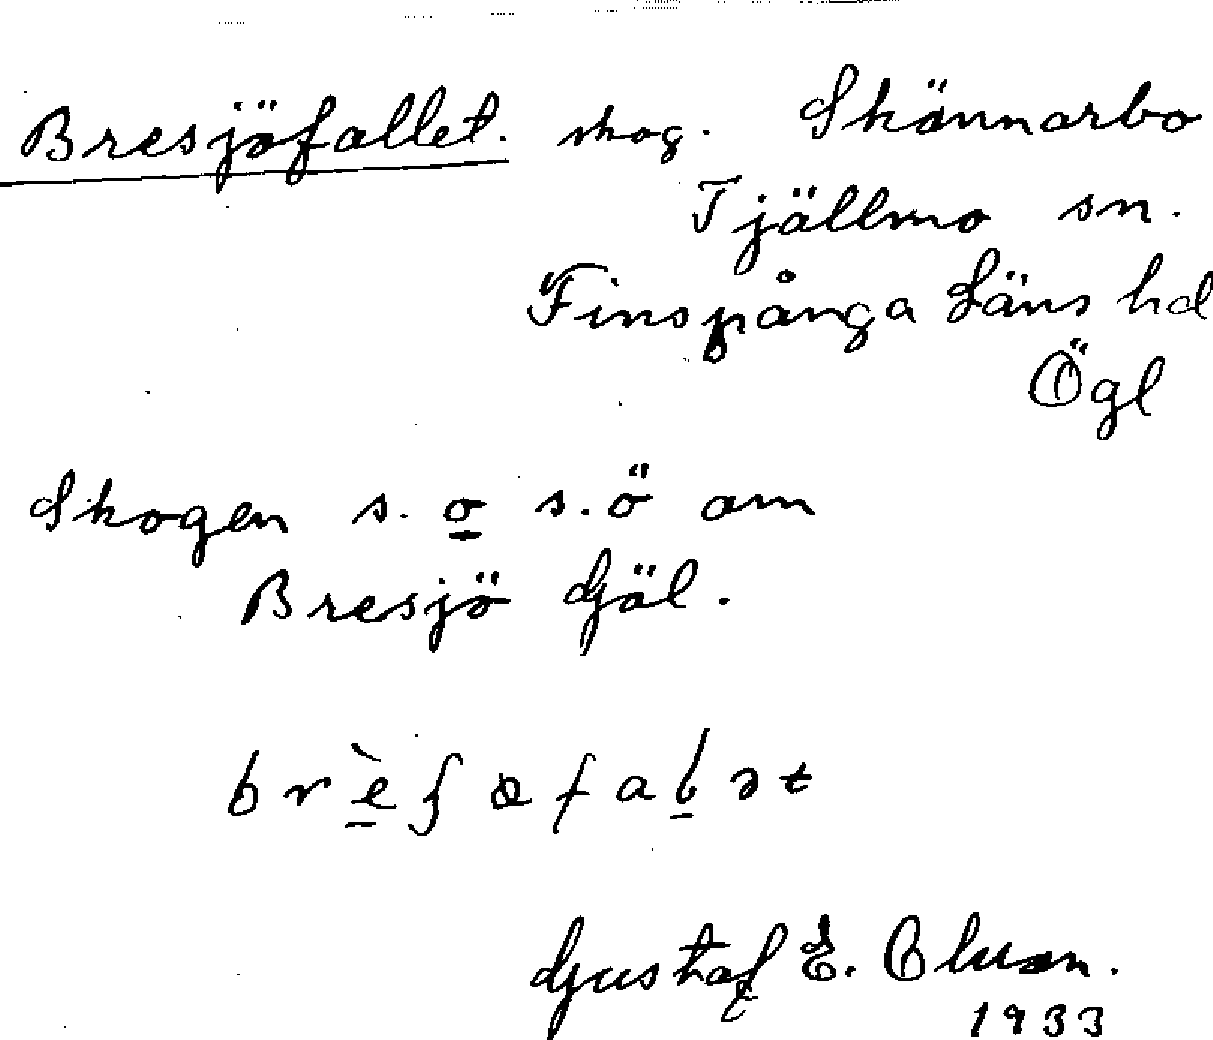 Bresjöfallet. skog. Skönnarbo
Tjällmo sn.
Finspånga Läns hd
Ögl
Skogen s. o s.ö om
Bresjö Göl.
Gustaf E.
1933